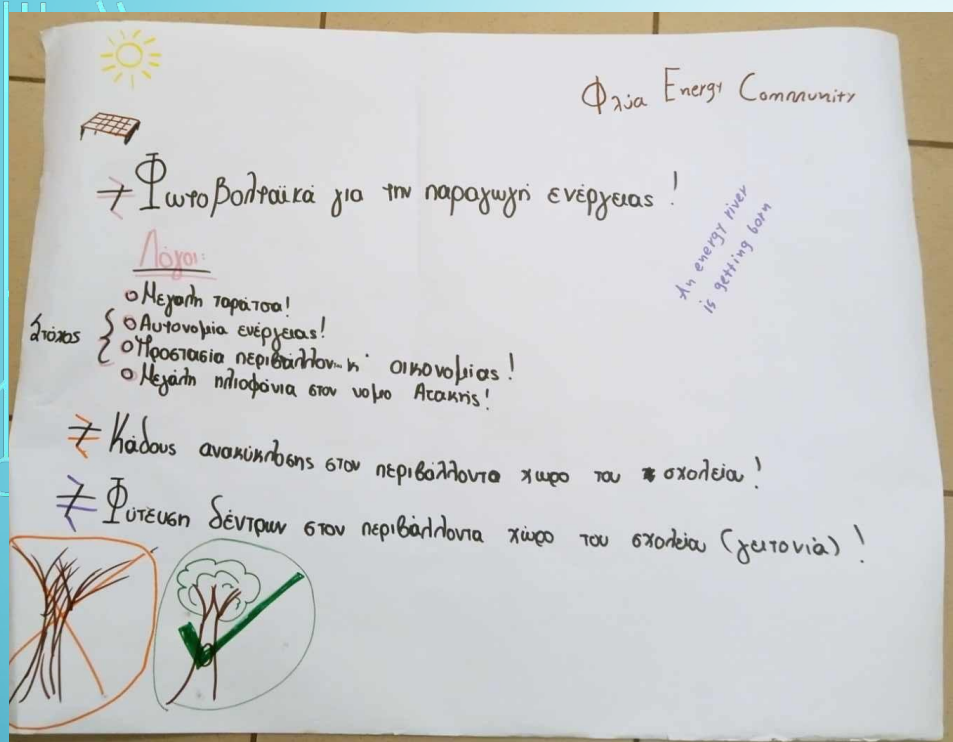 Φλύα Energy Community
Φωτοβολταϊκά για την παραγωγή ενέργειας!
An energy river
is getting born
Λόγοι:
Μεγάλη ταράτσα!
Στόχος
Αυτονομία ενέργειας!
Προστασία οικονομίας!
Μεγάλη ηλιοφάνια στον νομο Αττικής!
Κάδους ανακύκλοσης στον περιβάλλοντα χωρο του σχολεία!
Φύτευση δέντρων στον περιβάλλοντα χώρο του σχολείου (γειτονιά)!